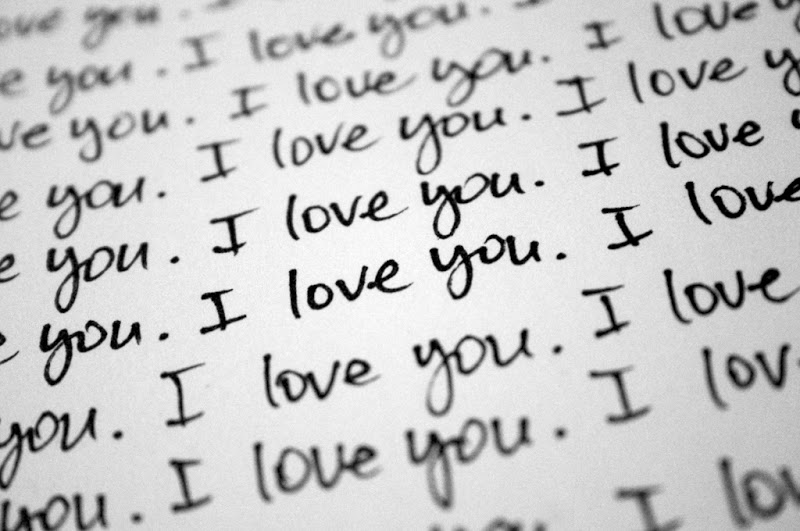 ove you.
e you. I love you.
ve you. I love you. I love y
e you. I love you. I love y
e you. I love you. I love y
e you. I love you. I love
you. I love you. I love
you. I love you. I lov
I lov